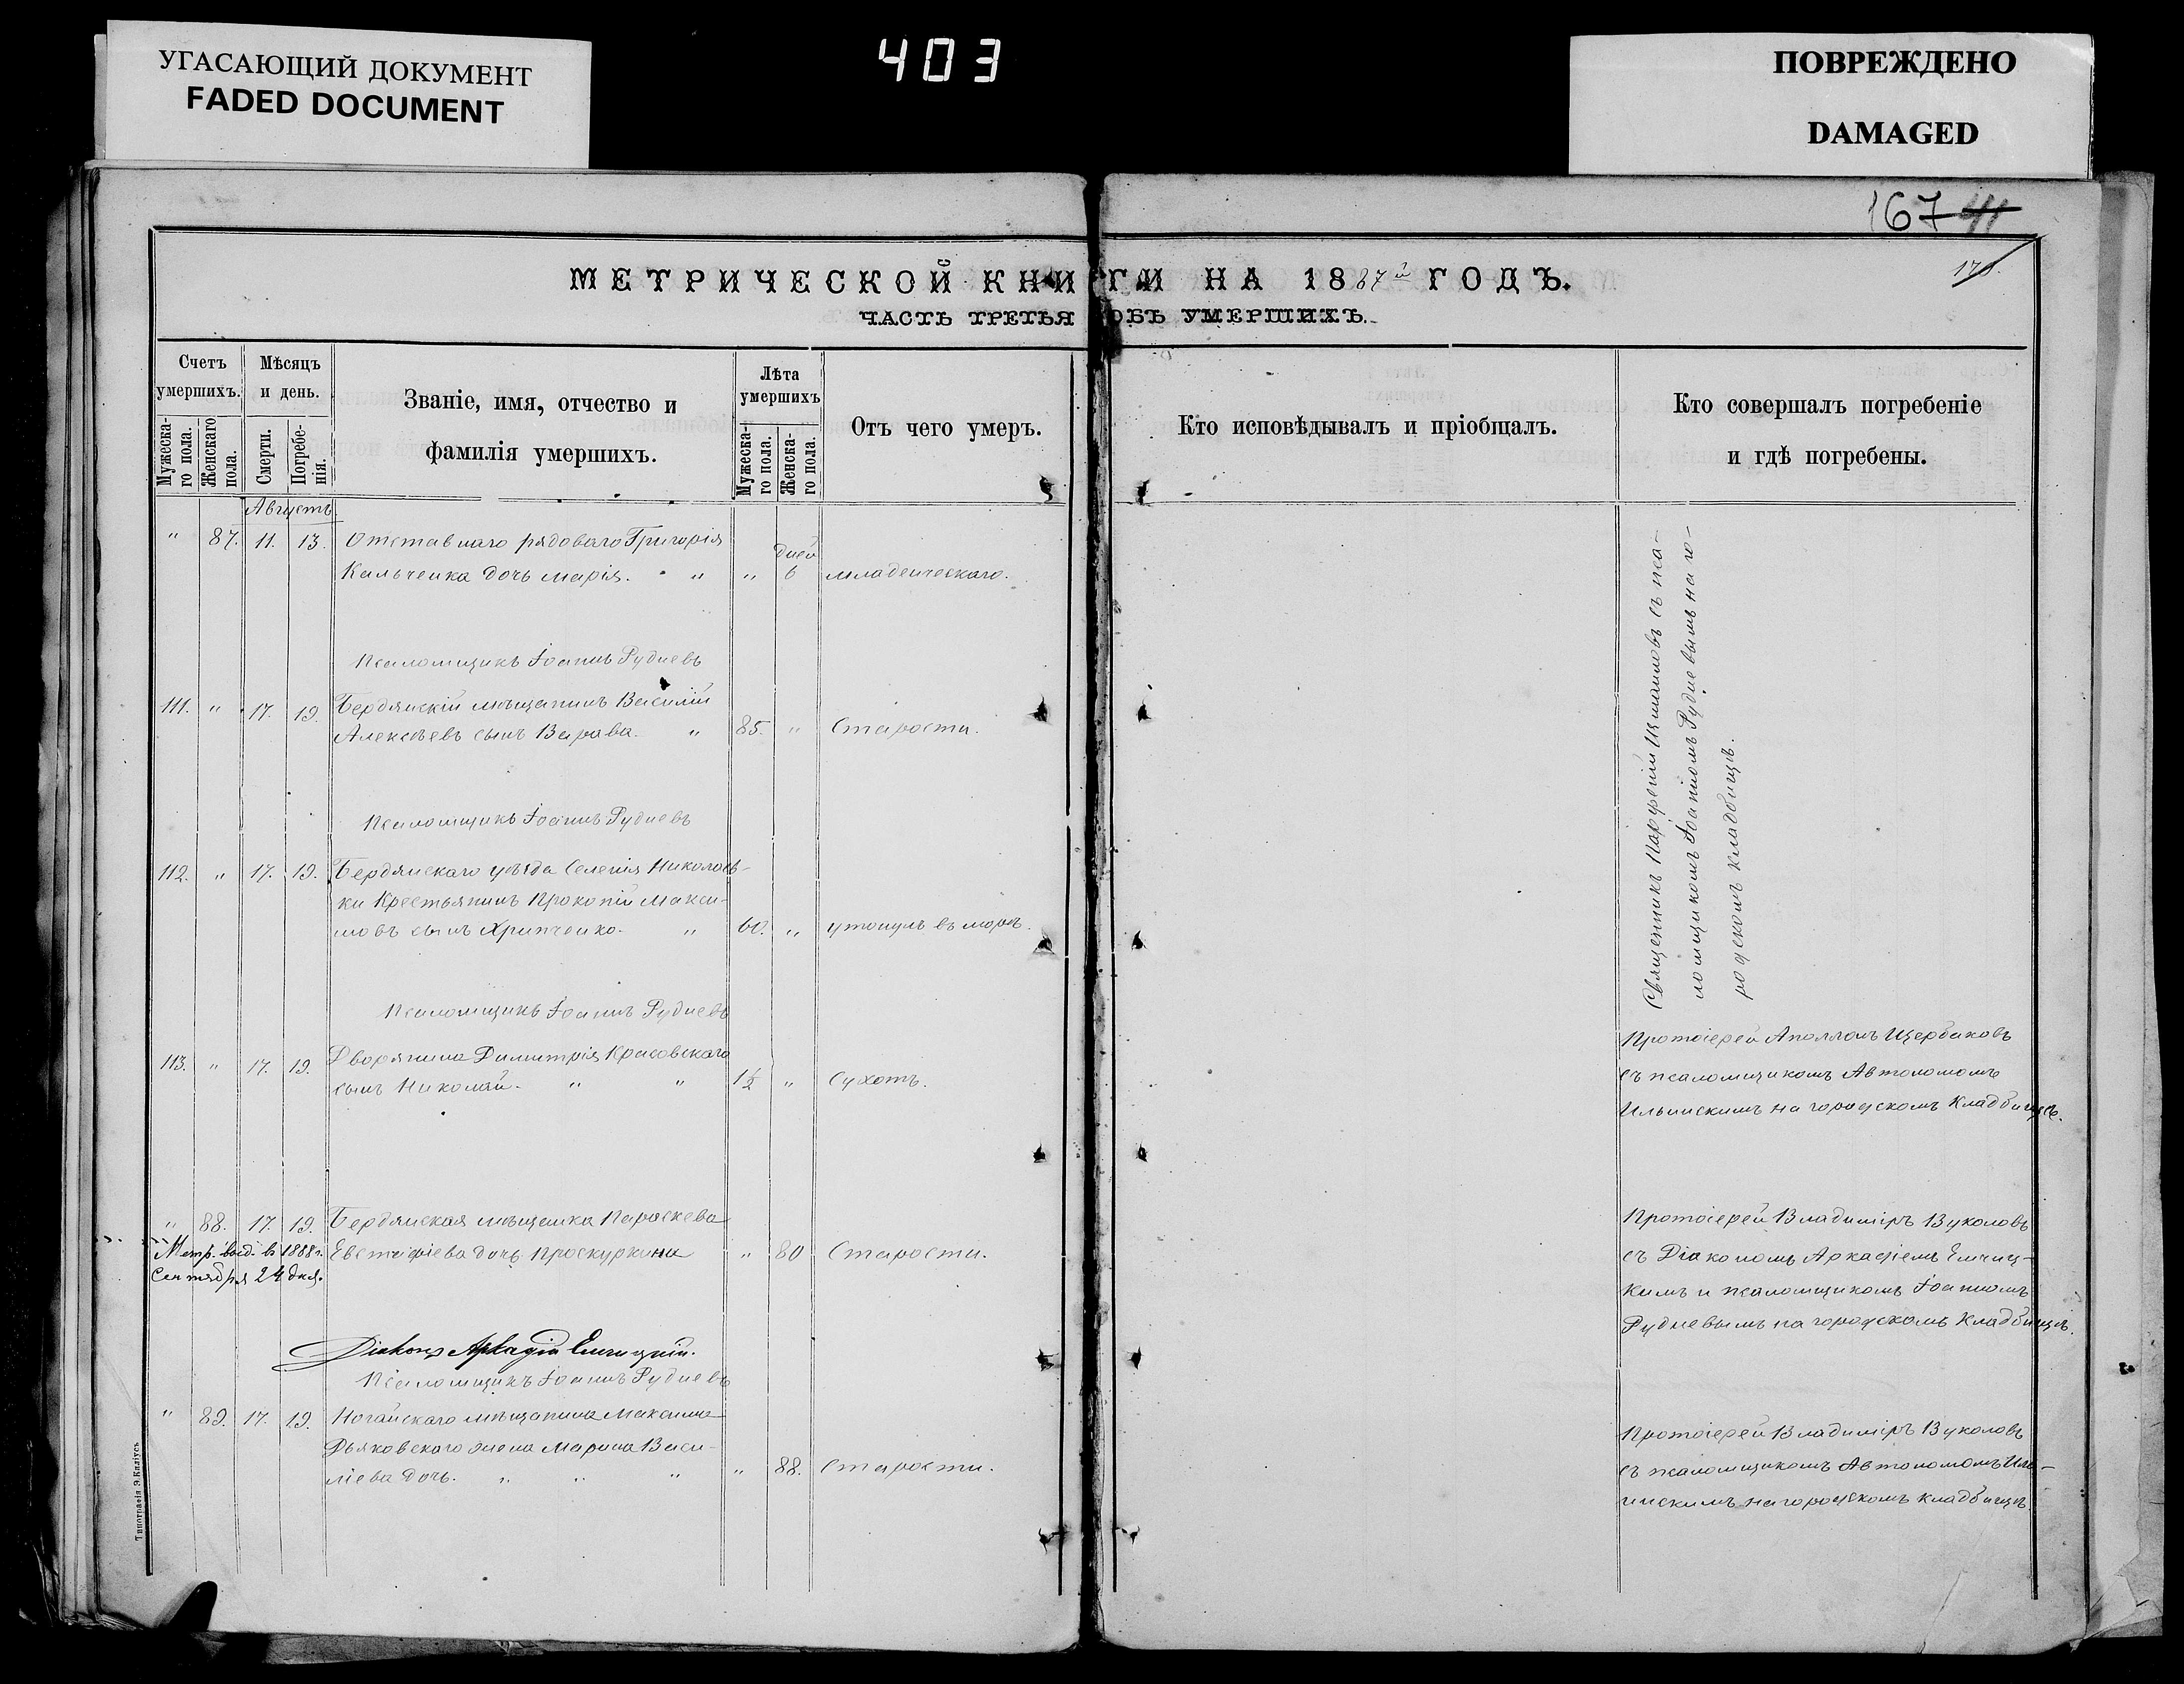 УГАСАЮЩИЙ ДОКУМЕНТ
FADED DOCUMENT
403
ПОВРЕЖДЕНО
DAMAGED
167 41
МЕТРИЧЕСКОЙ КНИГИ НА 1887й ГОДЪ.
ЧАСТЬ ТРЕТЬЯ ОБЪ УМЕРШИХЪ.
Счетъ умершихъ.
Мужеска-го пола.
Женскаго пола.
Мѣсяцъ и день.
Смерти.
Погребе-нія.
Званіе, имя, отчество и
фамилія умершихъ.
Лѣта умершихъ
Мужеска-го пола.
Женска-го пола.
Отъ чего умеръ.
Кто исповѣдывалъ и пріобщалъ.
Кто совершалъ погребеніе
и гдѣ погребены.
Августъ
" 87. 11. 13. Отставнаго рядоваго Григорія
дней
Кальченка дочь Марія. " " 6 младенческаго.
Псаломщикъ Іоаннъ Рудневъ
111. " 17. 19. Бердянскій мѣщанинъ Василій
Алексѣевъ сынъ Варава. " 85. " Старости.
Псаломщикъ Іоаннъ Рудневъ
112. " 17. 19. Бердянскаго уѣзда Селенія Николаев-
ки Крестьянинъ Прокопій Макси-
мовъ сынъ Хрипченко. " 60. " утонулъ въ морѣ.
Псаломщикъ Іоаннъ Рудневъ
Священникъ Парфеній съ пса-
ломщикомъ Іоанномъ Рудневымъ на го-
родскомъ кладбищѣ.
113. " 17. 19. Дворянина Димитрія Красовскаго
сынъ Николай. " " 1½ " Сухотъ.
Протоіерей Аполлонъ Щербаковъ
съ псаломщикомъ Автономомъ
Ильинскимъ на городскомъ Кладбищѣ.
" 88. 17. 19. Бердянская мѣщанка Параскева
Метр. выд. в 1888 г. Евстафіева дочь Проскуркина " 80 Старости.
Сентября 24 дня.
Діаконъ Аркадій Емчицкій.
Псаломщикъ Іоаннъ Рудневъ
Протоіерей Владиміръ Вуколовъ
съ Діакономъ Аркадіемъ Емчиц-
кимъ и псаломщикомъ Іоанномъ
Рудневымъ на городскомъ Кладбищѣ.
" 89. 17. 19. Ногайскаго мѣщанина Максима
Дьяковскаго жена Марина Васи-
ліева дочь. " " " " 88. Старости.
Протоіерей Владиміръ Вуколовъ
съ псаломщикомъ Автономомъ Иль-
инскимъ на городскомъ кладбищѣ.
Типографія Э. Килліусъ